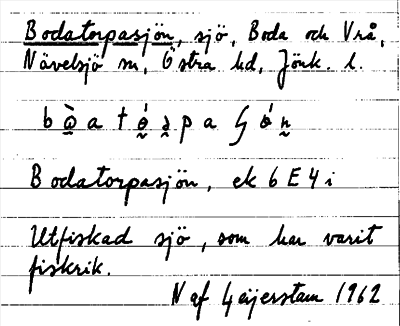 Bodatorpasjön, sjö, Boda och Vrå,
Nävelsjö sn, Östra hd, Jönk. l.
Bodatorpasjön, ek 6 E 4 i
Utfiskad sjö, som har varit
fiskrik.
N af Geijerstam 1962